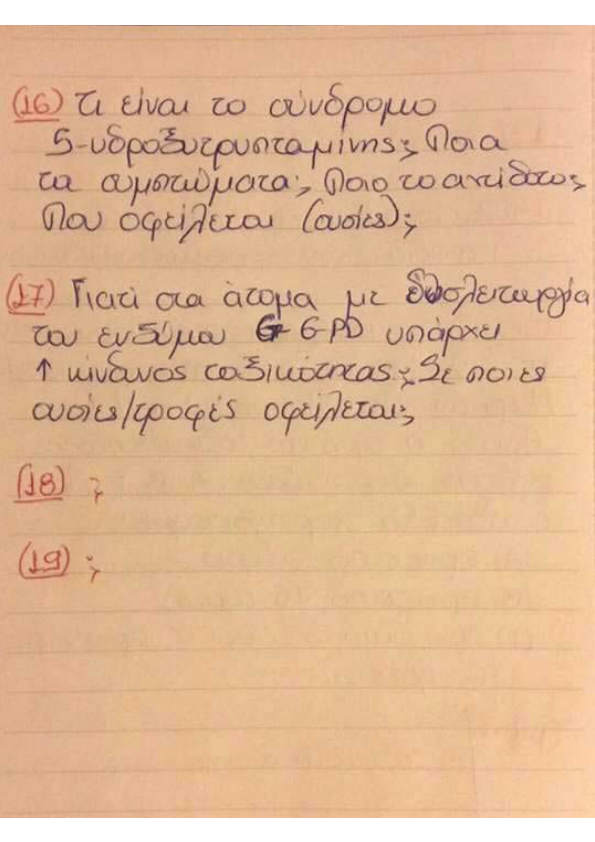 (16) Τι είναι το σύνδρομο
5-υδροξυτρυπταμίνης; Ποια
τα συμπτώματα; Ποιο το αντίδοτο;
Που οφείλεται (ουσίες);
(17) Γιατί στα άτομα με δυσλειτουργία
του ενζύμου G-6-PD υπάρχει
↑ κίνδυνος τοξικότητας; Σε ποιες
ουσίες/τροφές οφείλεται;
(18) ;
(19) ;